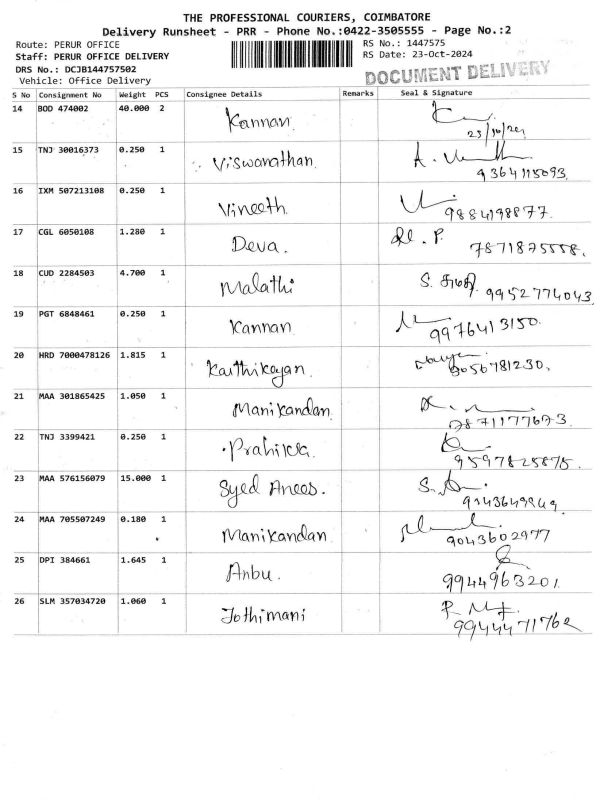 THE PROFESSIONAL COURIERS, COIMBATORE
Delivery Runsheet - PRR - Phone No.:0422-3505555 - Page No.:2
Route: PERUR OFFICE
RS No.: 1447575
Staff: PERUR OFFICE DELIVERY
RS Date: 23-Oct-2024
DRS No.: DCJB144757502
DOCUMENT DELIVERY
Vehicle: Office Delivery
S No Consignment No Weight PCS Consignee Details Remarks Seal & Signature
14 BOD 474002 40.000 2 Kannan
15 TNJ 30016373 0.250 1 Viswanathan 9364115093
16 IXM 507213108 0.250 1 Vineeth 9884198877
17 CGL 6050108 1.280 1 Deva. 7871875558
18 CUD 2284503 4.700 1 Malathi 9952774043
19 PGT 6848461 0.250 1 Kannan 9976413150
20 HRD 7000478126 1.815 1 Karthikeyan 9056781230
21 MAA 301865425 1.050 1 Manikandan 7871177673
22 TNJ 3399421 0.250 1 9597825875
23 MAA 576156079 15.000 1 Syed Anees.
24 MAA 705507249 0.180 1 Manikandan 9043602977
25 DPI 384661 1.645 1 Anbu. 9944963201
26 SLM 357034720 1.060 1 Jothimani 9944471762